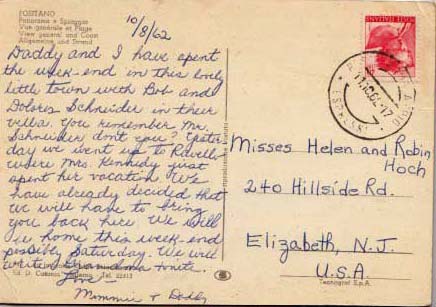 POSITANO
Panorama e Spiaggia
Vue générale et Plage
View general and Coast
Allgemeine und Strand
10/8/62
Daddy and I have spent
the week-end in this lovely
little town with Bob and
Dolores Schneider in their
villa. You remember Mr.
Schneider don't you? Yester-
day we went up to Ravello
where Mrs. Kennedy just
spent her vacation. We
have already decided that
we will have to bring
you back here. We will
be home this week-end
possibly Saturday. We will
write Grandma tonite.
Love -
Mommie + Daddy
POSTE ITALIANE
Misses Helen and Robin
Hoch
240 Hillside Rd.
Elizabeth, N.J.
U.S.A.
Tecnograf S.p.A.